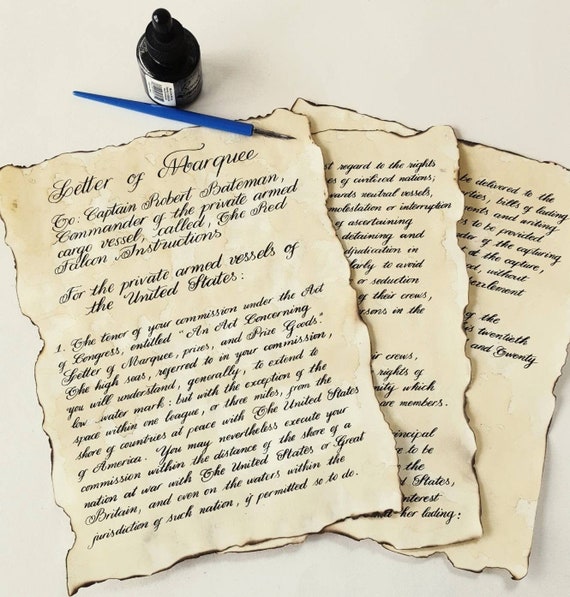 Letter of Marquee
To: Captain Robert Bateman,
Commander of the private armed
cargo vessel, called, The Red
Falcon Instructions
For the private armed vessels of
the United States:
1. The tenor of your commission under the Act
of Congress, entitled "An Act Concerning
Letter of Marquee, prizes, and Prize Goods."
The high seas, referred to in your commission,
you will understand, generally, to extend to
low water mark: but with the exception of the
space within one league, or three miles, from the
shore of countries at peace with The United States
of America. You may nevertheless execute your
commission within the distance of the shore of a
nation at war with The United States or Great
Britain, and even on the waters within the
jurisdiction of such nation, if permitted so to do.
st regard to the rights
es of civilized nations;
wards neutral vessels,
molestation or interruption
of ascertaining
detaining and
djudication in
larly to avoid
or seduction
of their crews,
ersons in the
eir crews,
rights of
nity which
are members.
rincipal
re to be
the
States,
nterest
her lading:
be delivered to the
ties, bills of lading
ents and writing
s to be provided
der of the capturing
t the capture,
ct, without
ezzlement
of the
s twentieth
and Twenty